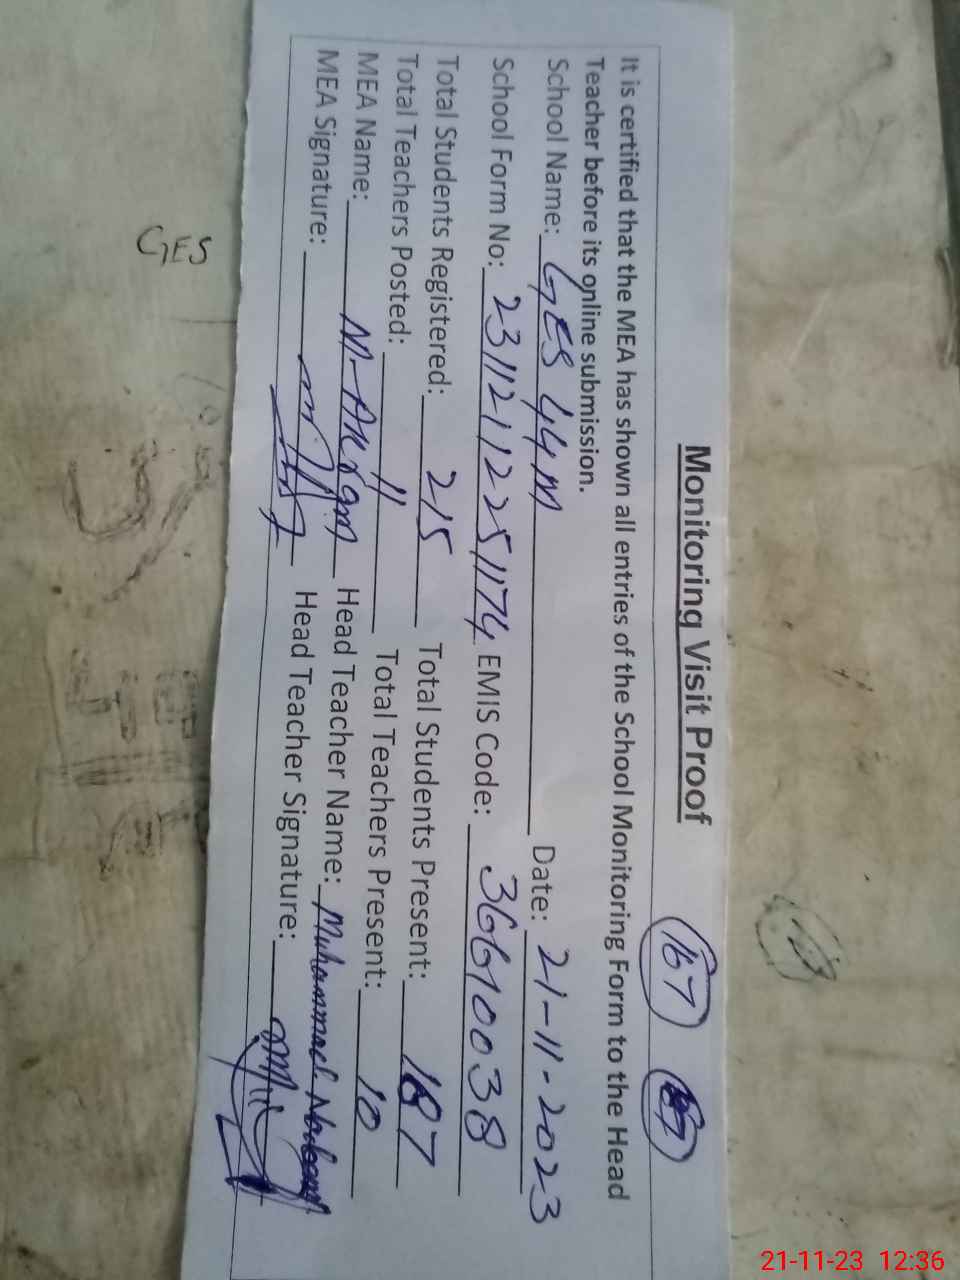 Monitoring Visit Proof 167
It is certified that the MEA has shown all entries of the School Monitoring Form to the Head
Teacher before its online submission.
School Name: GES 44 M Date: 21-11-2023
School Form No: 23112112251174 EMIS Code: 36610038
Total Students Registered: 215 Total Students Present: 187
Total Teachers Posted: 11 Total Teachers Present: 10
MEA Name: M. Akram Head Teacher Name: Muhammad Nadeem
MEA Signature: Head Teacher Signature:
GES
21-11-23 12:36